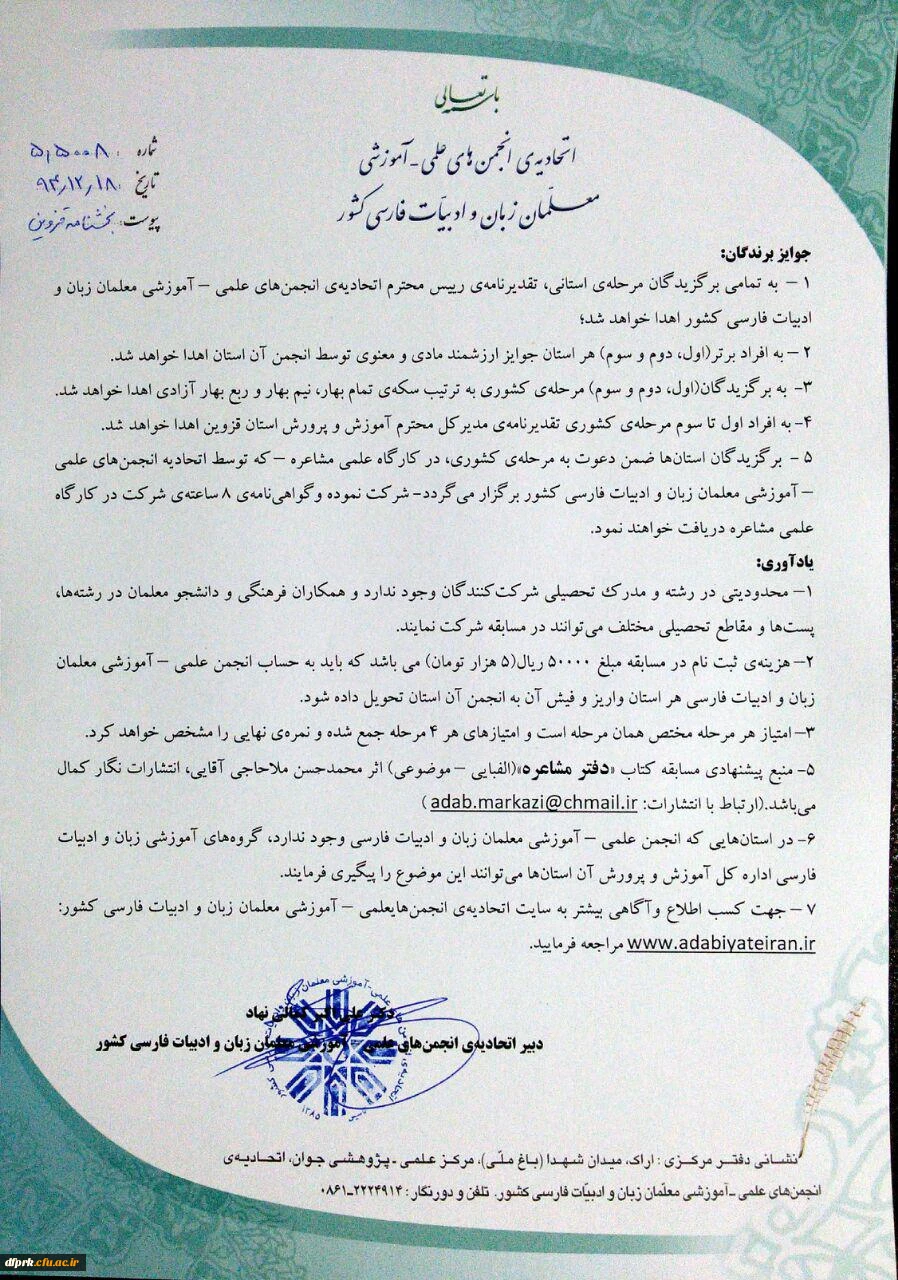 باسمه تعالی
اتحادیه‌ی انجمن‌های علمی - آموزشی
معلّمان زبان و ادبیّات فارسی کشور
شماره : ۵٫۵۰۰۸
تاریخ : ۹۴٫۱۲٫۱۸
پیوست : بخشنامه قزوین
جوایز برندگان:
۱ – به تمامی برگزیدگان مرحله‌ی استانی، تقدیرنامه‌ی رییس محترم اتحادیه‌ی انجمن‌های علمی – آموزشی معلمان زبان و
ادبیات فارسی کشور اهدا خواهد شد؛
۲ – به افراد برتر(اول، دوم و سوم) هر استان جوایز ارزشمند مادی و معنوی توسط انجمن آن استان اهدا خواهد شد.
۳- به برگزیدگان(اول، دوم و سوم) مرحله‌ی کشوری به ترتیب سکه‌ی تمام بهار، نیم بهار و ربع بهار آزادی اهدا خواهد شد.
۴- به افراد اول تا سوم مرحله‌ی کشوری تقدیرنامه‌ی مدیرکل محترم آموزش و پرورش استان قزوین اهدا خواهد شد.
۵ - برگزیدگان استان‌ها ضمن دعوت به مرحله‌ی کشوری، در کارگاه علمی مشاعره – که توسط اتحادیه انجمن‌های علمی
– آموزشی معلمان زبان و ادبیات فارسی کشور برگزار می‌گردد- شرکت نموده وگواهی‌نامه‌ی ۸ ساعته‌ی شرکت در کارگاه
علمی مشاعره دریافت خواهند نمود.
یادآوری:
۱– محدودیتی در رشته و مدرک تحصیلی شرکت‌کنندگان وجود ندارد و همکاران فرهنگی و دانشجو معلمان در رشته‌ها،
پست‌ها و مقاطع تحصیلی مختلف می‌توانند در مسابقه شرکت نمایند.
۲– هزینه‌ی ثبت نام در مسابقه مبلغ ۵۰۰۰۰ ریال(۵ هزار تومان) می باشد که باید به حساب انجمن علمی – آموزشی معلمان
زبان و ادبیات فارسی هر استان واریز و فیش آن به انجمن آن استان تحویل داده شود.
۳– امتیاز هر مرحله مختص همان مرحله است و امتیازهای هر ۴ مرحله جمع شده و نمره‌ی نهایی را مشخص خواهد کرد.
۵- منبع پیشنهادی مسابقه کتاب «دفتر مشاعره»(الفبایی – موضوعی) اثر محمدحسن ملاحاجی آقایی، انتشارات نگار کمال
می‌باشد.(ارتباط با انتشارات: adab.markazi@chmail.ir )
۶- در استان‌هایی که انجمن علمی – آموزشی معلمان زبان و ادبیات فارسی وجود ندارد، گروه‌های آموزشی زبان و ادبیات
فارسی اداره کل آموزش و پرورش آن استان‌ها می‌توانند این موضوع را پیگیری فرمایند.
۷ – جهت کسب اطلاع وآگاهی بیشتر به سایت اتحادیه‌ی انجمن‌هایعلمی – آموزشی معلمان زبان و ادبیات فارسی کشور:
www.adabiyateiran.ir مراجعه فرمایید.
دکتر علی اکبر کمالی نهاد
دبیر اتحادیه‌ی انجمن‌های علمی – آموزشی معلمان زبان و ادبیات فارسی کشور
۱۳۸۵
نشانی دفتر مرکزی : اراک، میدان شهدا (باغ ملّی)، مرکز علمی - پژوهشی جوان، اتحادیه‌ی
انجمن‌های علمی -آموزشی معلّمان زبان و ادبیّات فارسی کشور. تلفن و دورنگار : ۲۲۲۴۹۱۴-۰۸۶۱
dfprk.cfu.ac.ir